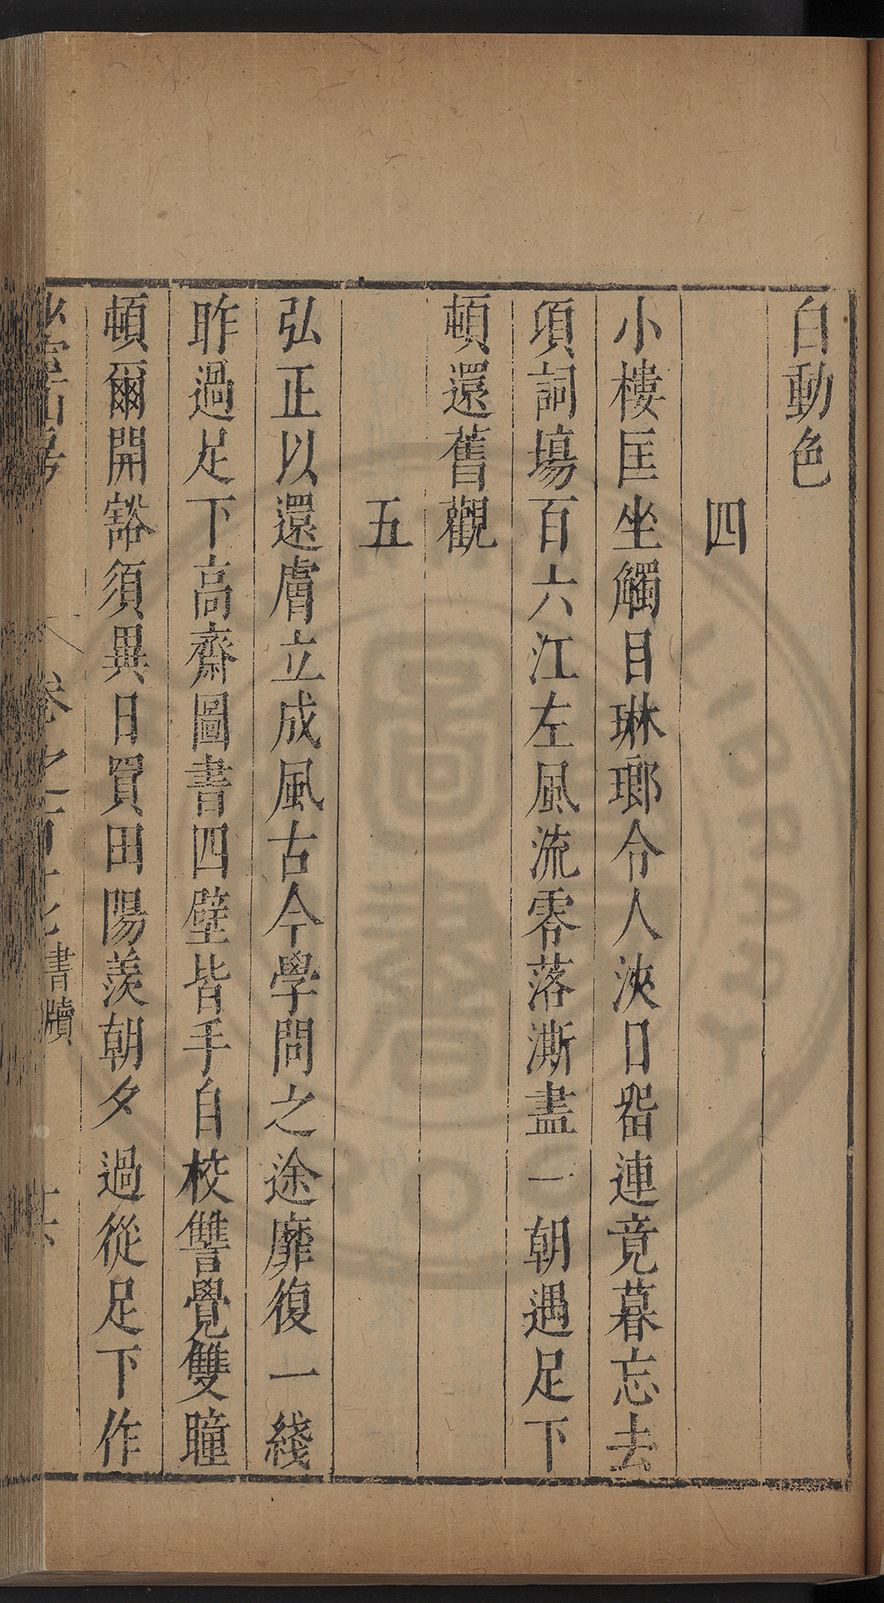 自動色
四
小樓匡坐觸目琳瑯令人浹日畱連竟暮忘去
項詞塲百六江左風流零落澌盡一朝遇足下
頓還舊觀
五
弘正以還膚立成風古今學問之途靡復一綫
昨過足下高齋圖書四壁皆手自校讐覺雙瞳
頓爾開豁須異日買田陽羨朝夕過從足下作
山房
卷之百
書牘